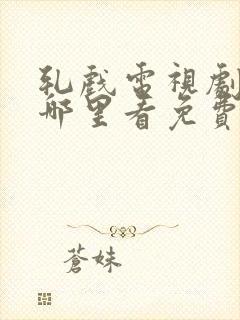 乱戲電視劇
哪里看免費
蒼妹